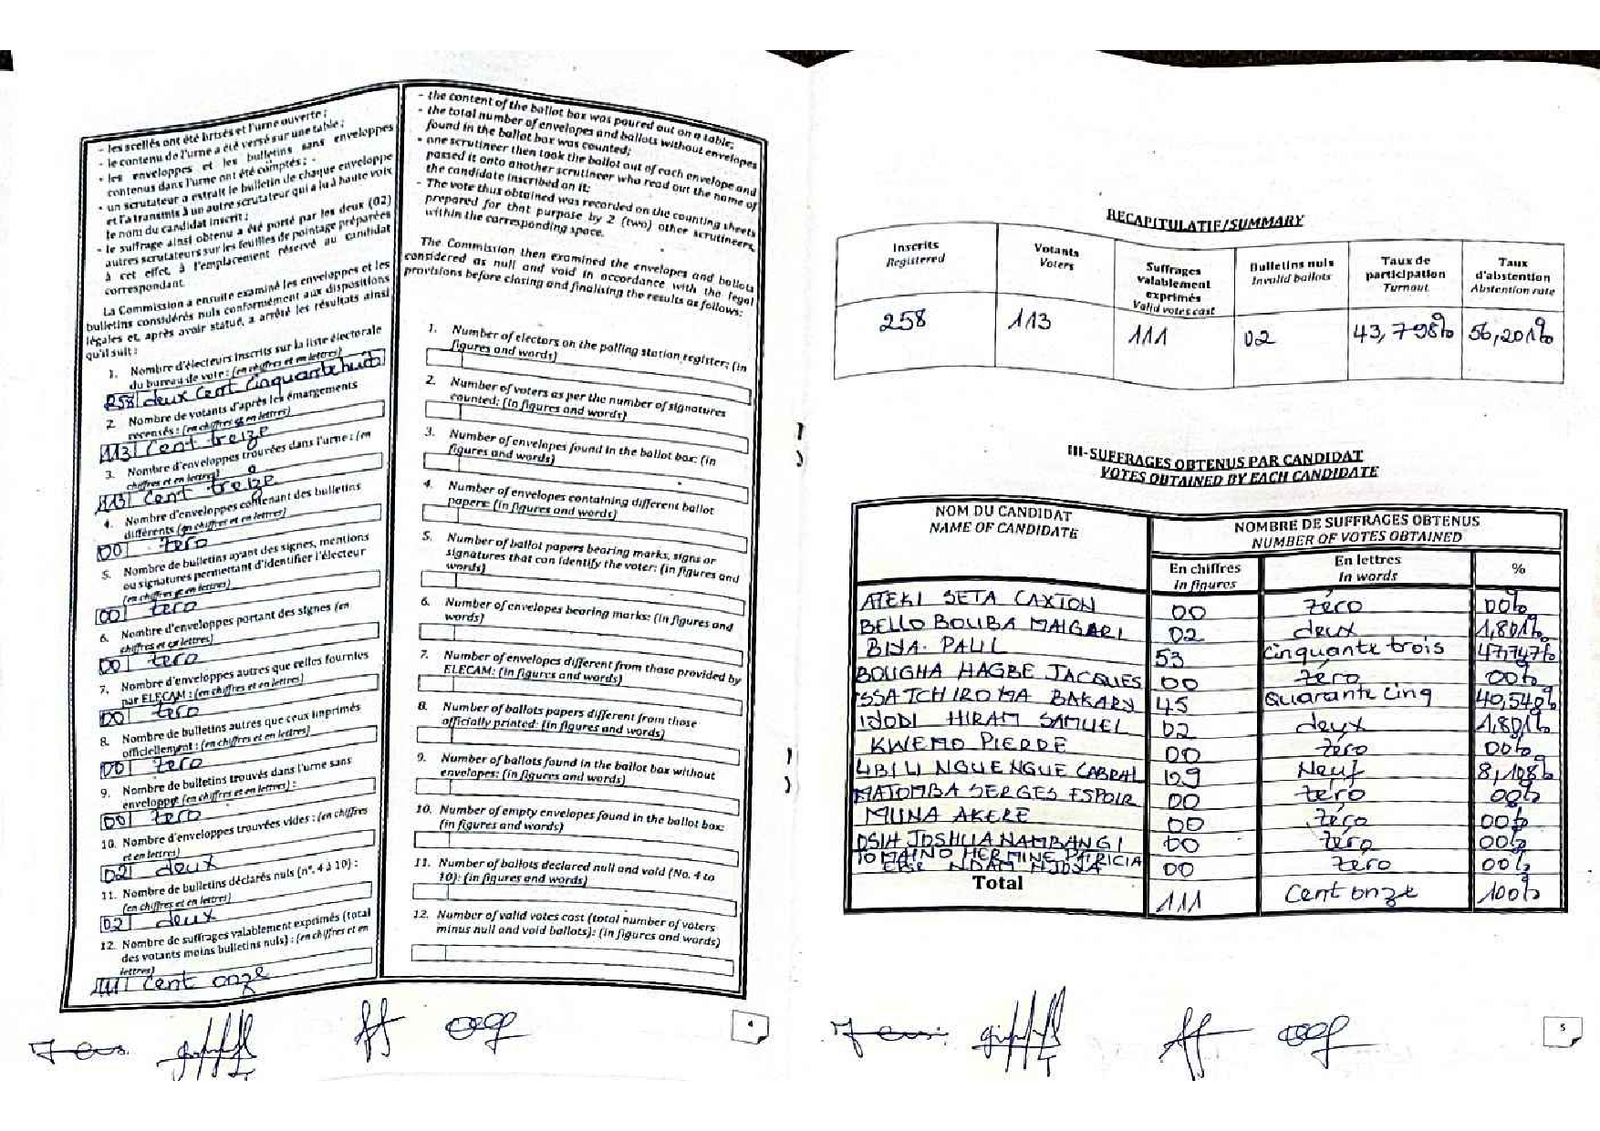 - les scellés ont été brisés et l'urne ouverte ;
- le contenu de l'urne a été versé sur une table ;
- les enveloppes et les bulletins sans enveloppes
contenus dans l'urne ont été comptés ;
- un scrutateur a extrait le bulletin de chaque enveloppe
et l'a transmis à un autre scrutateur qui a lu à haute voix
le nom du candidat inscrit ;
- le suffrage ainsi obtenu a été porté par les deux (02)
autres scrutateurs sur les feuilles de pointage préparées
à cet effet, à l'emplacement réservé au candidat
correspondant.
La Commission a ensuite examiné les enveloppes et les
bulletins considérés nuls conformément aux dispositions
légales et, après avoir statué, a arrêté les résultats ainsi
qu'il suit :
1. Nombre d'électeurs inscrits sur la liste électorale
du bureau de vote : (en chiffres et en lettres)
258 deux Cent Cinquante huit
2. Nombre de votants d'après les émargements
recensés : (en chiffres et en lettres)
113 Cent treize
3. Nombre d'enveloppes trouvées dans l'urne : (en
chiffres et en lettres)
113 Cent treize
4. Nombre d'enveloppes contenant des bulletins
différents (en chiffres et en lettres)
00 zero
5. Nombre de bulletins ayant des signes, mentions
ou signatures permettant d'identifier l'électeur
(en chiffres et en lettres)
00 zero
6. Nombre d'enveloppes portant des signes (en
chiffres et en lettres)
00 zero
7. Nombre d'enveloppes autres que celles fournies
par ELECAM : (en chiffres et en lettres)
00 zero
8. Nombre de bulletins autres que ceux imprimés
officiellement : (en chiffres et en lettres)
00 zero
9. Nombre de bulletins trouvés dans l'urne sans
enveloppe (en chiffres et en lettres) :
00 zero
10. Nombre d'enveloppes trouvées vides : (en chiffres
et en lettres)
02 deux
11. Nombre de bulletins déclarés nuls (n°. 4 à 10) :
(en chiffres et en lettres)
02 deux
12. Nombre de suffrages valablement exprimés (total
des votants moins bulletins nuls) : (en chiffres et en
lettres)
111 Cent onze
- the content of the ballot box was poured out on a table;
- the total number of envelopes and ballots without envelopes
found in the ballot box was counted;
- one scrutineer then took the ballot out of each envelope and
passed it onto another scrutineer who read out the name of
the candidate inscribed on it;
- The vote thus obtained was recorded on the counting sheets
prepared for that purpose by 2 (two) other scrutineers,
within the corresponding space.
The Commission then examined the envelopes and ballots
considered as null and void in accordance with the legal
provisions before closing and finalising the results as follows:
1. Number of electors on the polling station register: (in
figures and words)
2. Number of voters as per the number of signatures
counted: (in figures and words)
3. Number of envelopes found in the ballot box: (in
figures and words)
4. Number of envelopes containing different ballot
papers: (in figures and words)
5. Number of ballot papers bearing marks, signs or
signatures that can identify the voter: (in figures and
words)
6. Number of envelopes bearing marks: (in figures and
words)
7. Number of envelopes different from those provided by
ELECAM: (in figures and words)
8. Number of ballots papers different from those
officially printed: (in figures and words)
9. Number of ballots found in the ballot box without
envelopes: (in figures and words)
10. Number of empty envelopes found in the ballot box:
(in figures and words)
11. Number of ballots declared null and void (No. 4 to
10): (in figures and words)
12. Number of valid votes cost (total number of voters
minus null and void ballots): (in figures and words)
4
RECAPITULATIF/SUMMARY
Inscrits Registered | Votants Voters | Suffrages valablement exprimés Valid votes cast | Bulletins nuls Invalid ballots | Taux de participation Turnout | Taux d'abstention Abstention rate
258 | 113 | 111 | 02 | 43,798% | 56,201%
III-SUFFRAGES OBTENUS PAR CANDIDAT
VOTES OBTAINED BY EACH CANDIDATE
NOM DU CANDIDAT NAME OF CANDIDATE | NOMBRE DE SUFFRAGES OBTENUS NUMBER OF VOTES OBTAINED
En chiffres In figures | En lettres In words | %
ATEKI SETA CAXTON 00 zéro 00%
BELLO BOUBA MAIGARI 02 deux 1,801%
BIYA. PAUL 53 Cinquante trois 47,747%
BOUGHA HAGBE JACQUES 00 zéro 00%
ISSA TCHIROMA BAKARY 45 Quarante Cinq 40,540%
IYODI HIRAM SAMUEL 02 deux 1,801%
KWEMO PIERRE 00 zéro 00%
LIBII LI NGUE NGUE CABRAL 09 Neuf 8,108%
MATOMBA SERGES ESPOIR 00 zéro 00%
MUNA AKERE 00 zéro 00%
OSIH JOSHUA NAMBANGI 00 zéro 00%
TOMAINO HERMINE PATRICIA
EPSE NDAM NJOYA 00 zéro 00%
Total 111 Cent onze 100%
5